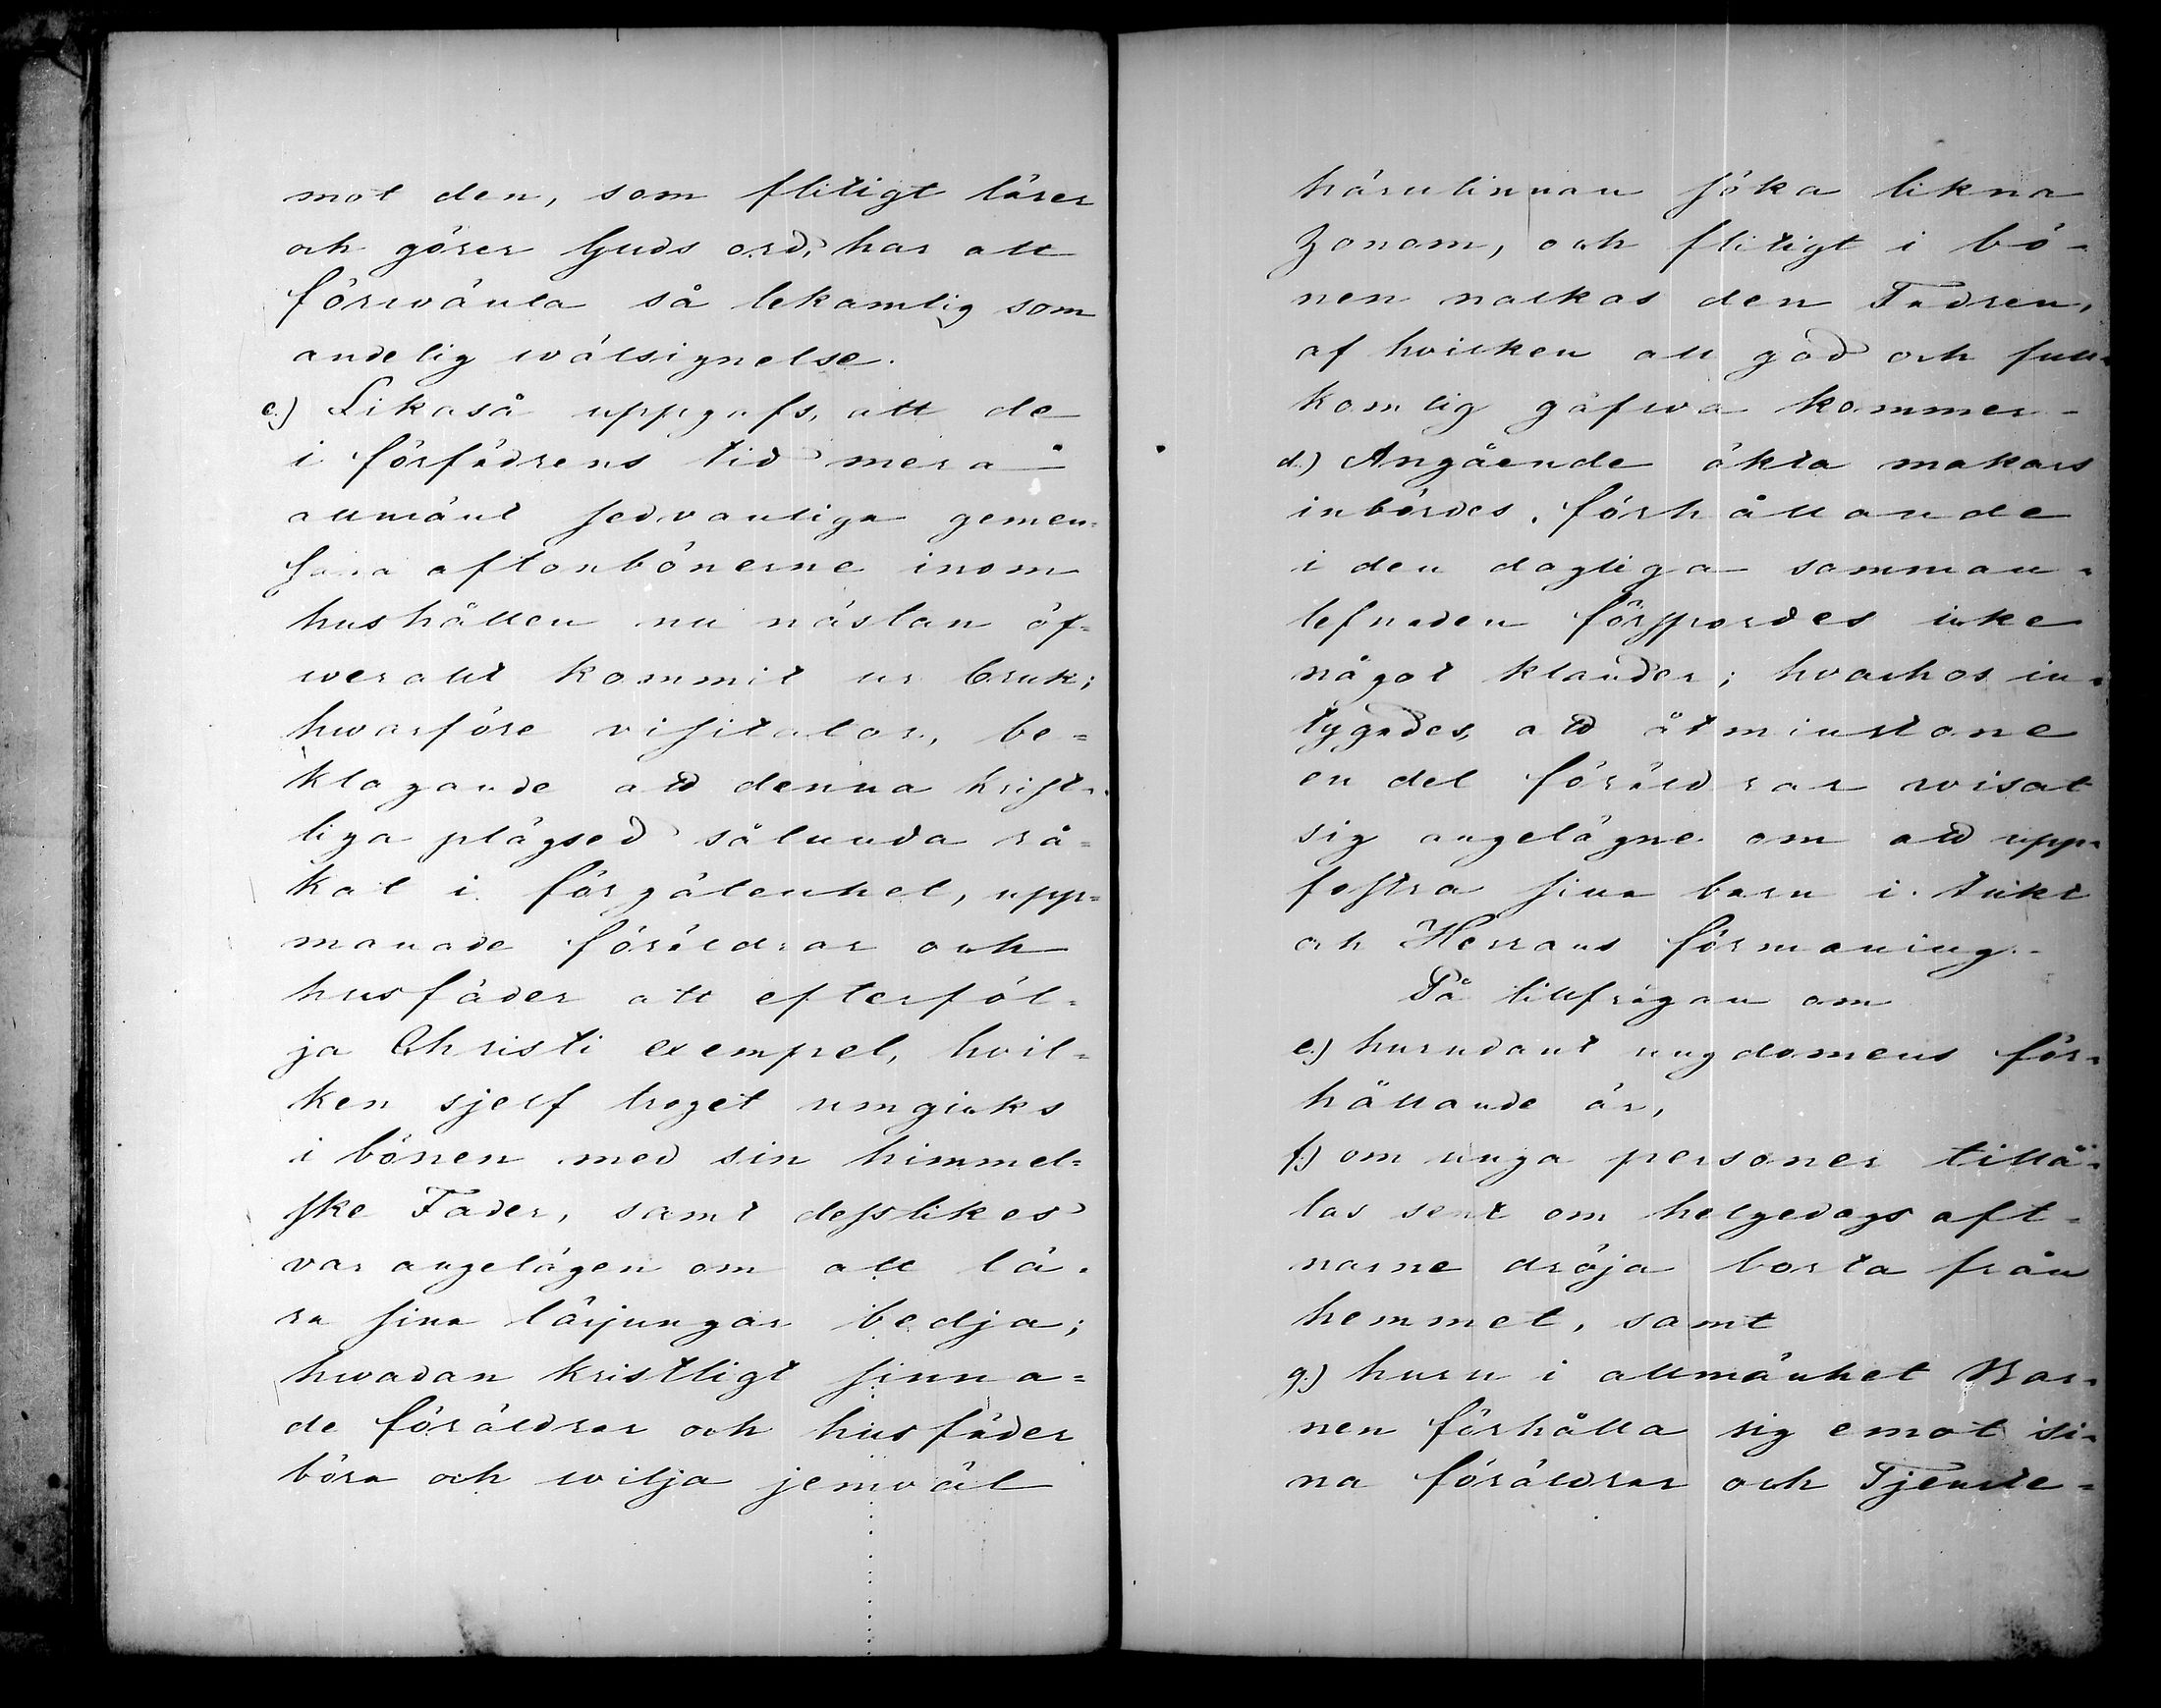 mot den, som flitigt lärer
och görer Guds ord, har att
förwänta så lekamlig som
andelig wälsignelse.
c.) Likaså uppgafs, att de
i förfädrens tid mera
allmänt sedvanliga gemen-
sama aftonbönerne inom
hushållen nu nästan öf-
werallt kommit ur bruk;
hwarföre visitator, be-
klagande att denna krist-
liga plägsed sålunda rå-
kat i förgätenhet, upp-
manade föräldrar och
husfäder att efterföl-
ja Christi exempel, hvil-
ken sjelf troget umgicks
i bönen med sin himmel-
ske Fader, samt desslikes
var angelägen om att lä-
ra sina lärjungar bedja;
hwadan kristligt sinna-
de föräldrar och husfäder
böra och wilja jemväl
härutinnan söka likna
honom, och flitigt i bö-
nen nalkas den Fadren,
af hvilken all god och full-
komlig gåfwa kommer -
d.) Angående äkta makars
inbördes förhållande
i den dagliga samman-
lefnaden förspordes icke
något klander; hvarhos in-
tygades, att åtminstone
en del föräldrar wisat
sig angelägne om att upp-
fostra sina barn i tukt
och Herrans förmaning. -
På tillfrågan om
e.) hurudant ungdomens för-
hållande är,
f.) om unga personer tillå-
tas sent om helgedags aft-
narne dröja borta från
hemmet, samt
g.) huru i allmänhet Bar-
nen förhålla sig emot si-
na föräldrar och Tjenste-